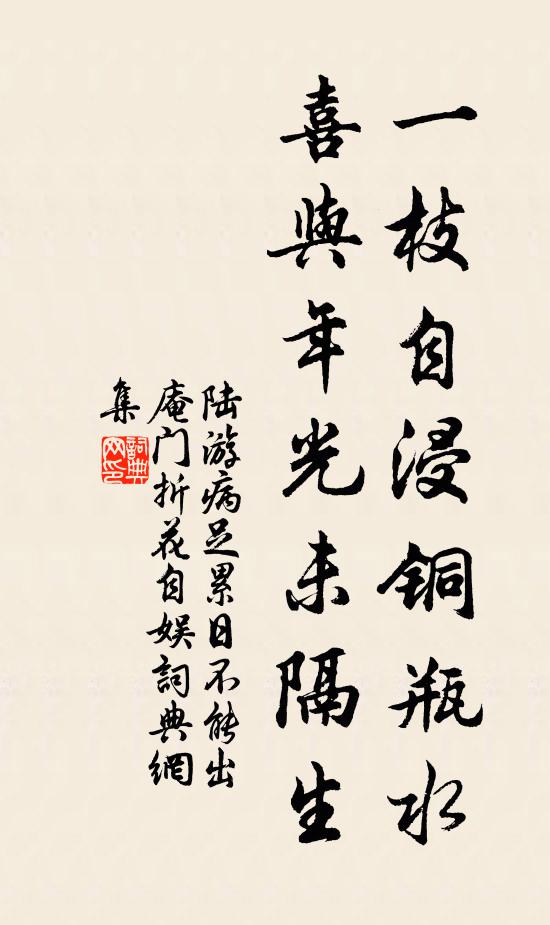 一枝自浸铜瓶水
喜與年光未隔生
陆游病足累日不能出
庵门折花自娱詞典網
集
詞典
网印